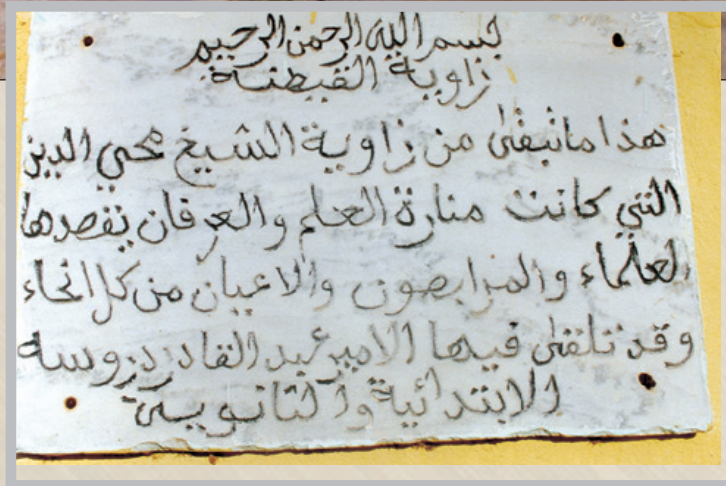 بسم الله الرحمن الرحيم
زاوية القيطنة
هذا ما تبقى من زاوية الشيخ محي الدين
التي كانت منارة العلم والعرفان يقصدها
العلماء والمرابطون والاعيان من كل انحاء
وقد تلقى فيها الامير عبد القادر دروسه
الابتدائية والثانوية